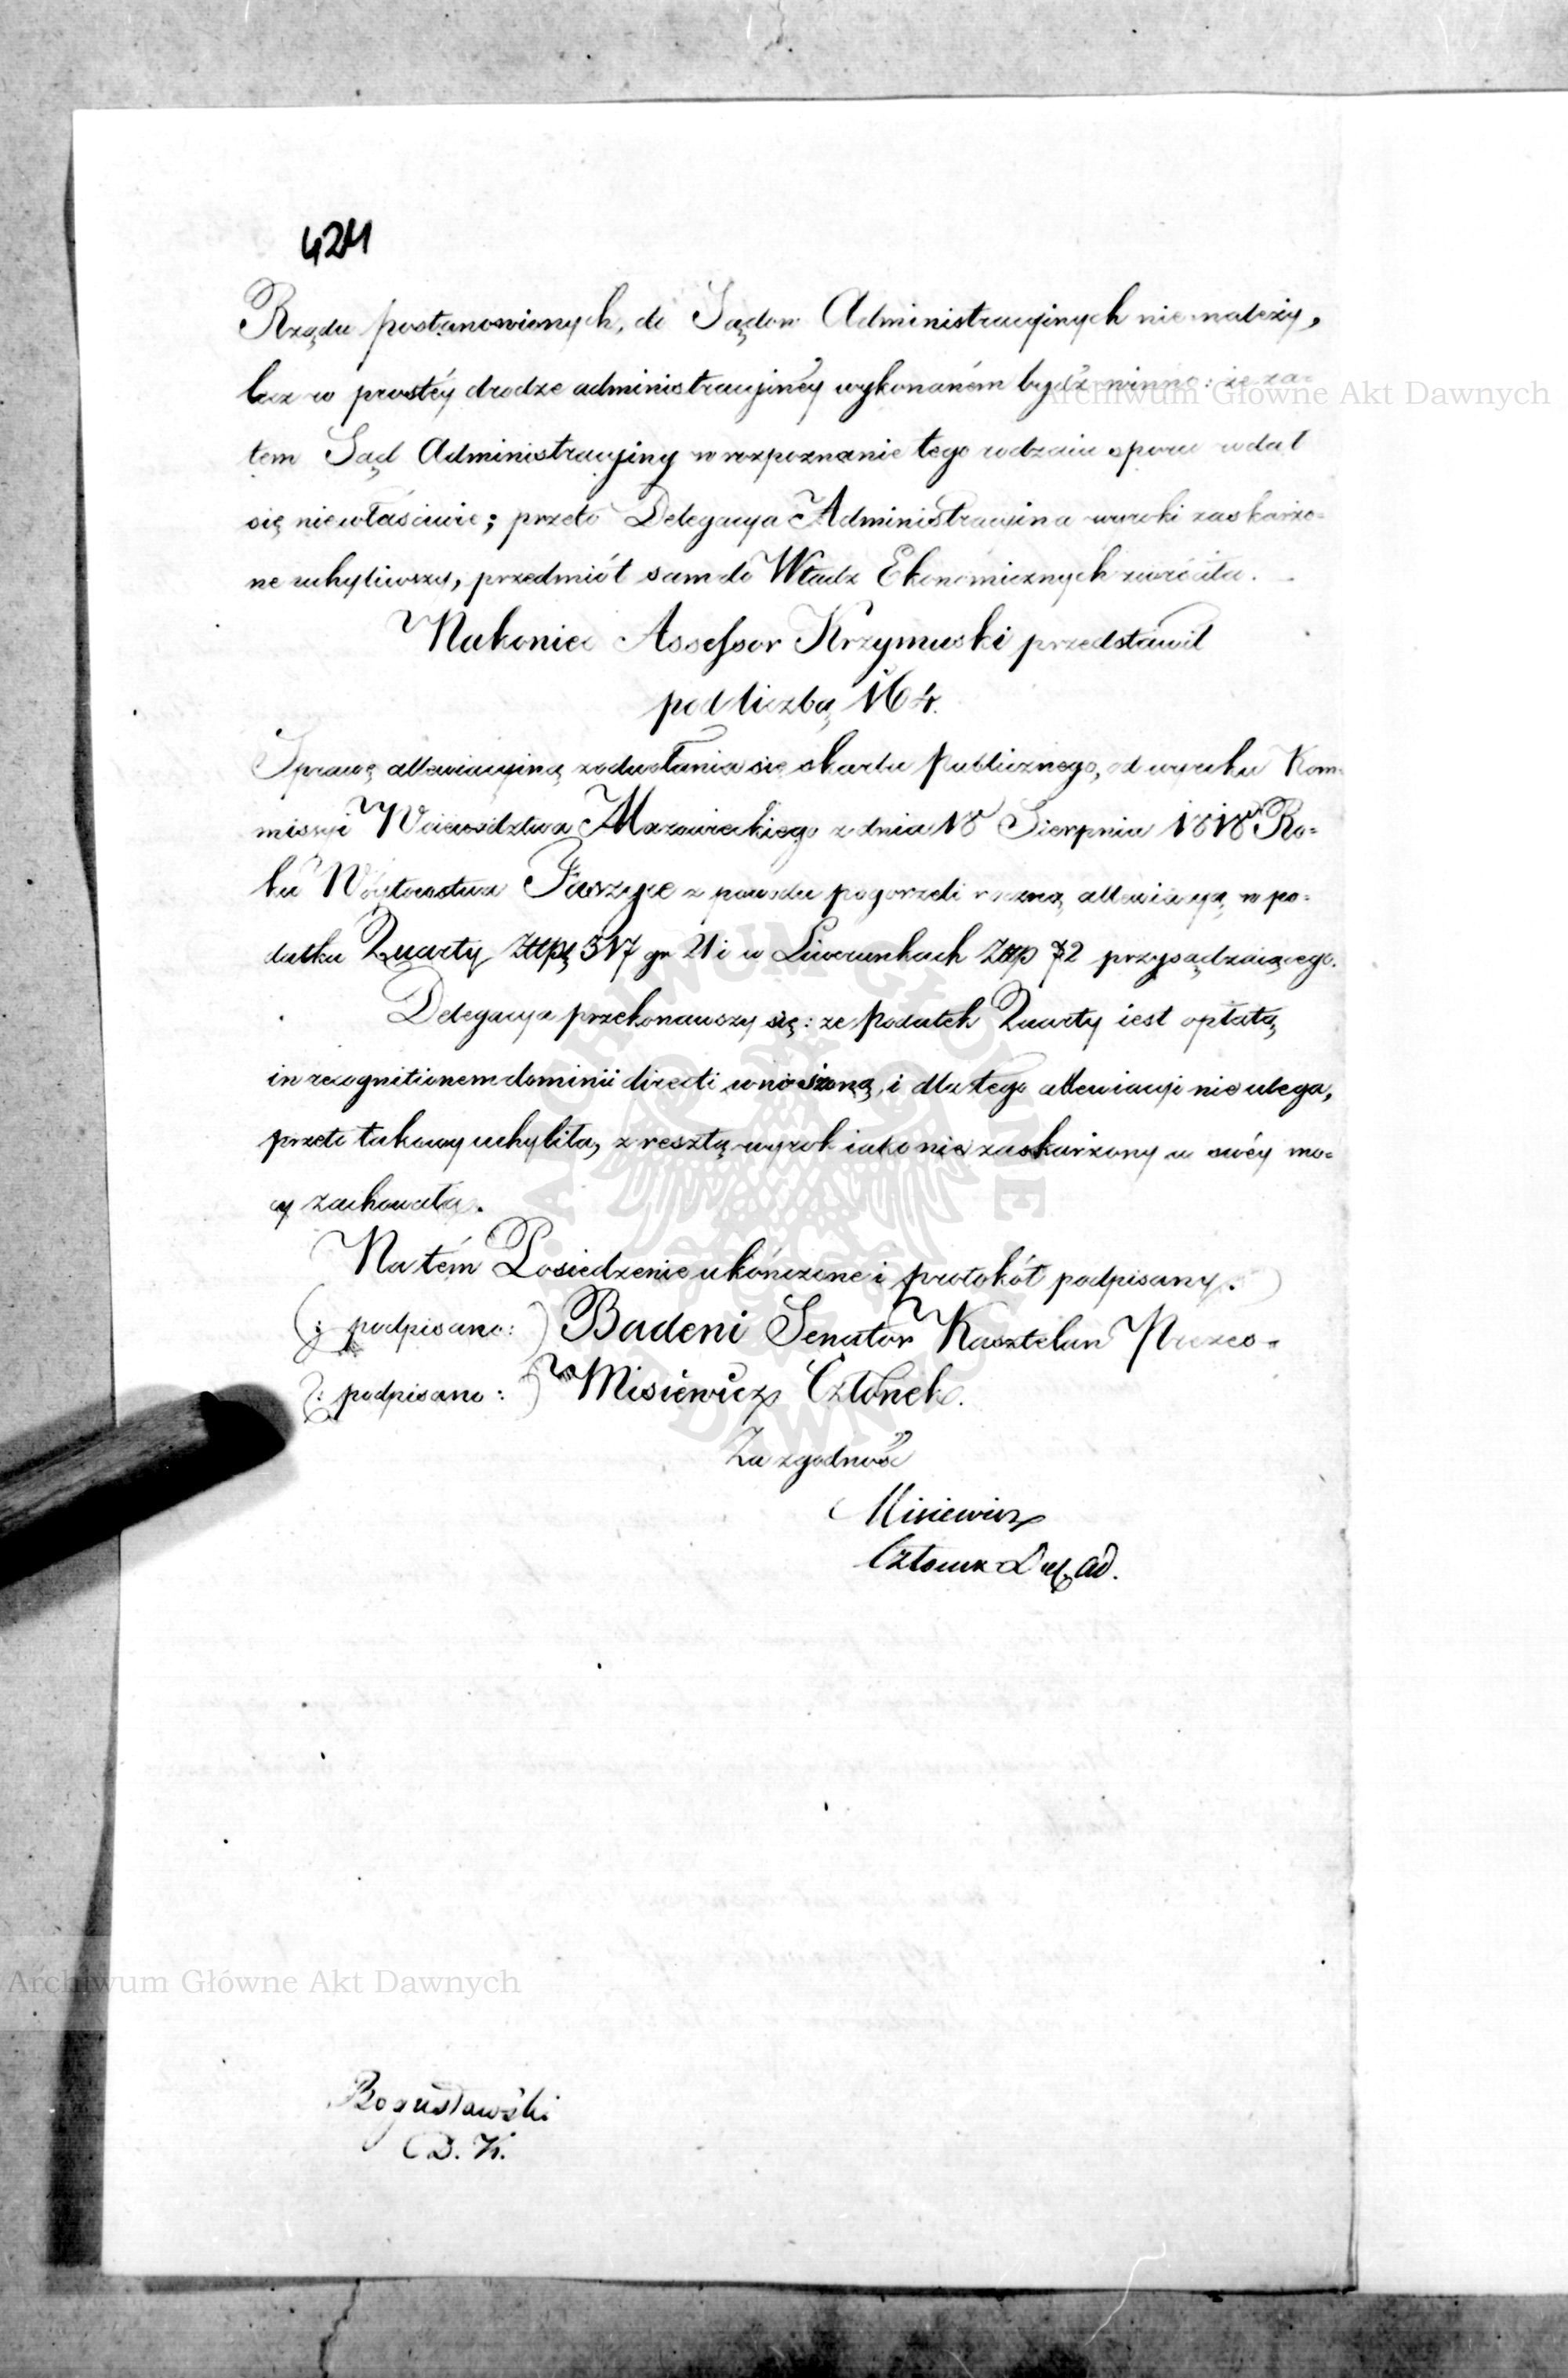 424
Rządu postanowionych, do Sądów Administracyinych nie należy,
lecz w prostéy drodze administracyinéy wykonaném bydź winno: że za-
tem Sąd Administracyiny w rozpoznanie tego rodzaiu sporu wdał
się niewłaściwie; przeto Delegacya Administracyina wyroki zaskarżo=
ne uchyliwszy, przedmiót sam do Władz Ekonomicznych zwróciła.
Nakoniec Assessor Krzymuski przedstawił
pod liczbą 164.
Sprawę allewiacyiną z odwołania się skarbu Publicznego, od wyroku Kom=
missyi Woiewództwa Mazowieckiego z dnia 18 Sierpnia 1818 Ro=
ku Wóytowstwu z powodu pogorzeli roczną allewiacyą w po=
datku Quarty Złtp 517 gr 21 i w Liwerunkach Złtp 72 przysądzaiącego.
Delegacya przekonawszy się: że Podatek Quarty iest opłatą,
in recognitionem dominii directi wnoszoną, i dla tego allewiacyi nie ulega,
przeto takowy uchyliła, z resztą wyrok iako nie zaskarżony w swéy mo=
cy zachowała.
Na tém Posiedzenie ukończone i protokół podpisany.
(: podpisano:) Badeni Senator Kasztelan Prezes=
(: podpisano:) Misiewicz Członek.
Za zgodność
Misiewicz
Członek Del. Ad.
Bogusławski
D. K.
Archiwum Główne Akt Dawnych
Archiwum Główne Akt Dawnych
ARCHIWUM GŁÓWNE AKT DAWNYCH